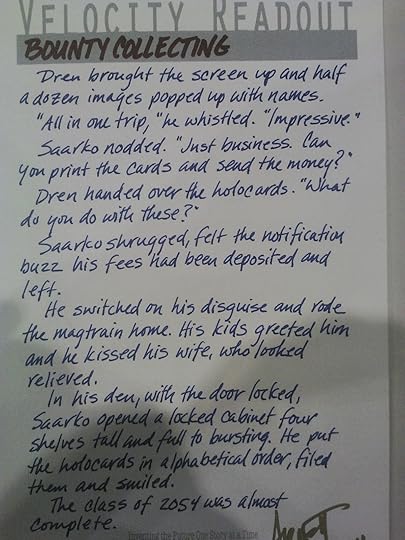 VELOCITY READOUT
BOUNTY COLLECTING
Dren brought the screen up and half
a dozen images popped up with names.
"All in one trip, "he whistled. "Impressive."
Saarko nodded. "Just business. Can
you print the cards and send the money?"
Dren handed over the holocards. "What
do you do with these?"
Saarko shrugged, felt the notification
buzz his fees had been deposited and
left.
He switched on his disguise and rode
the magtrain home. His kids greeted him
and he kissed his wife, who looked
relieved.
In his den, with the door locked,
Saarko opened a locked cabinet four
shelves tall and full to bursting. He put
the holocards in alphabetical order, filed
them and smiled.
The class of 2054 was almost
complete.
Inventing the Future One Story at a Time